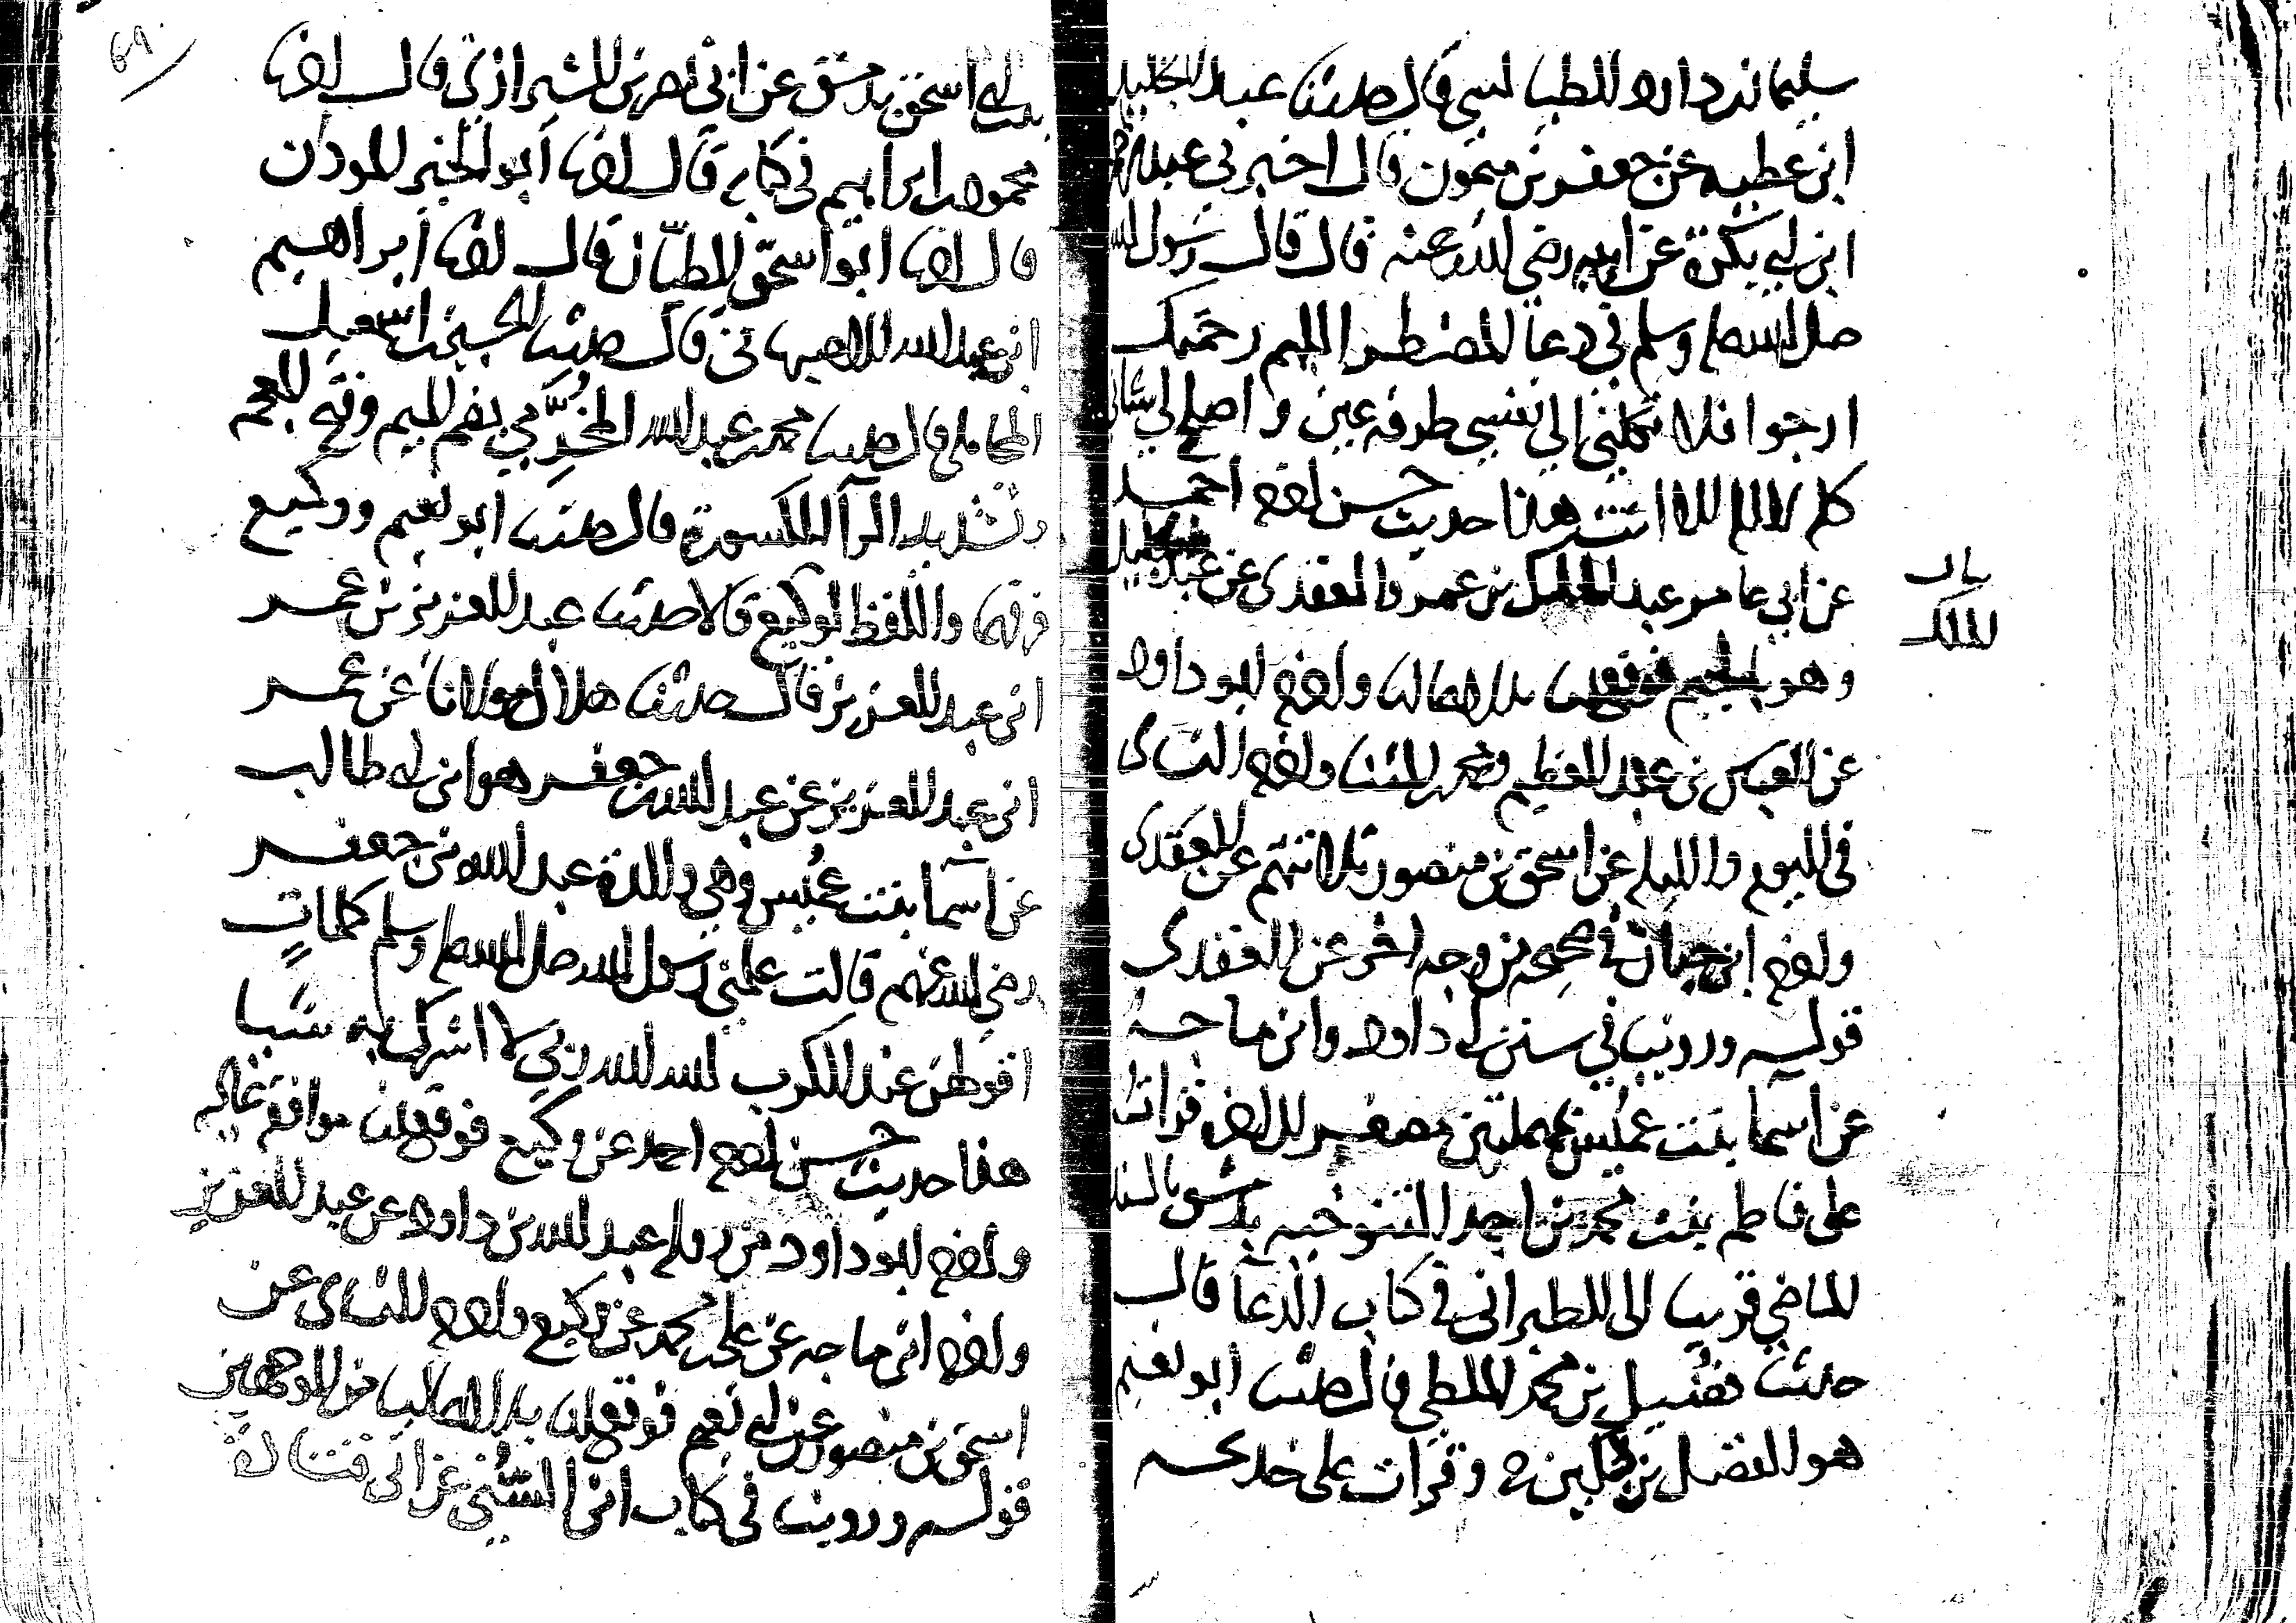 سليمان بن داود الطيالسي قال حدثنا عبد الجليل
ابن عطيه عن جعفر بن ميمون قال اخبرني عبد الرحمن
ابن ابي بكرة عن ابيه رضي الله عنه قال قال رسول الله
صلى الله عليه وسلم في دعا المضطر اللهم رحمتك
ارجوا فلا تكلني الي نفسي طرفه عين واصلح لي شاني
كله لا اله الا انت هذا حديث حسن اخرجه احمد
عن ابي عامر عبد الملك بن عمرو العقدي عن عبد الجليل
بيان
الملك
وهو بالجيم فوقع لنا بدلا عاليا واخرجه ابو داود
عن العباس بن عبد العظيم ومحمد بن المثنا واخرجه النسائي
في اليوم والليله عن اسحق بن منصور ثلاثتهم عن العقدي
واخرجه ابن حبان في صحيحه من وجه اخر عن العقدي
قوله وروينا في سنن ابي داود وابن ماجه
عن اسما بنت عميس بمهملتين مصغر الى اخره قرات
على فاطمه بنت محمد بن احمد التنوخيه بدمشق بالسند
الماضي قريبا الى الطبراني في كتاب الدعا قال
حدثنا فضيل بن محمد الملطي قال حدثنا ابو نعيم
هو الفضل بن دكين ح وقرات على خديجه
بنت ابي اسحق بدمشق عن ابي نصر بن الشيرازي قال اخبرنا
محمود بن ابراهيم في كتابه قال اخبرنا ابو الخير المودن
قال اخبرنا ابو اسحق الطيان قال اخبرنا ابراهيم
ابن عبد الله الاصبهاني قال حدثنا الحسين بن اسمعيل
المحاملي قال حدثنا محمد بن عبد الله المخرّمي بضم الميم وفتح المعجمه
وتشديد الرآ المكسورة قال حدثنا ابو نعيم ووكيع
فرقهما واللفظ لوكيع قالا حدثنا عبد العزيز بن عمر
ابن عبد العزيز قال حدثنا هلال مولانا عن عمر
ابن عبد العزيز عن عبد الله بن جعفر هو ابن ابي طالب
عن اسما بنت عميس وهي والدة عبد الله بن جعفر
رضي الله عنهم قالت علمني رسول الله صلى الله عليه وسلم كلمات
اقولهن عند الكرب الله الله ربي لا اشرك به شيا
هذا حديث حسن اخرجه احمد عن وكيع فوقع لنا موافقه عاليه
واخرجه ابو داود من روايه عبد الله بن داود عن عبد العزيز
واخرجه ابن ماجه عن علي بن محمد عن وكيع واخرجه النسائي عن
اسحق بن منصور عن ابي نعيم فوقع لنا بدلا عاليا من الوجهين
قوله وروينا في كتاب ابن السني عن ابي قتادة